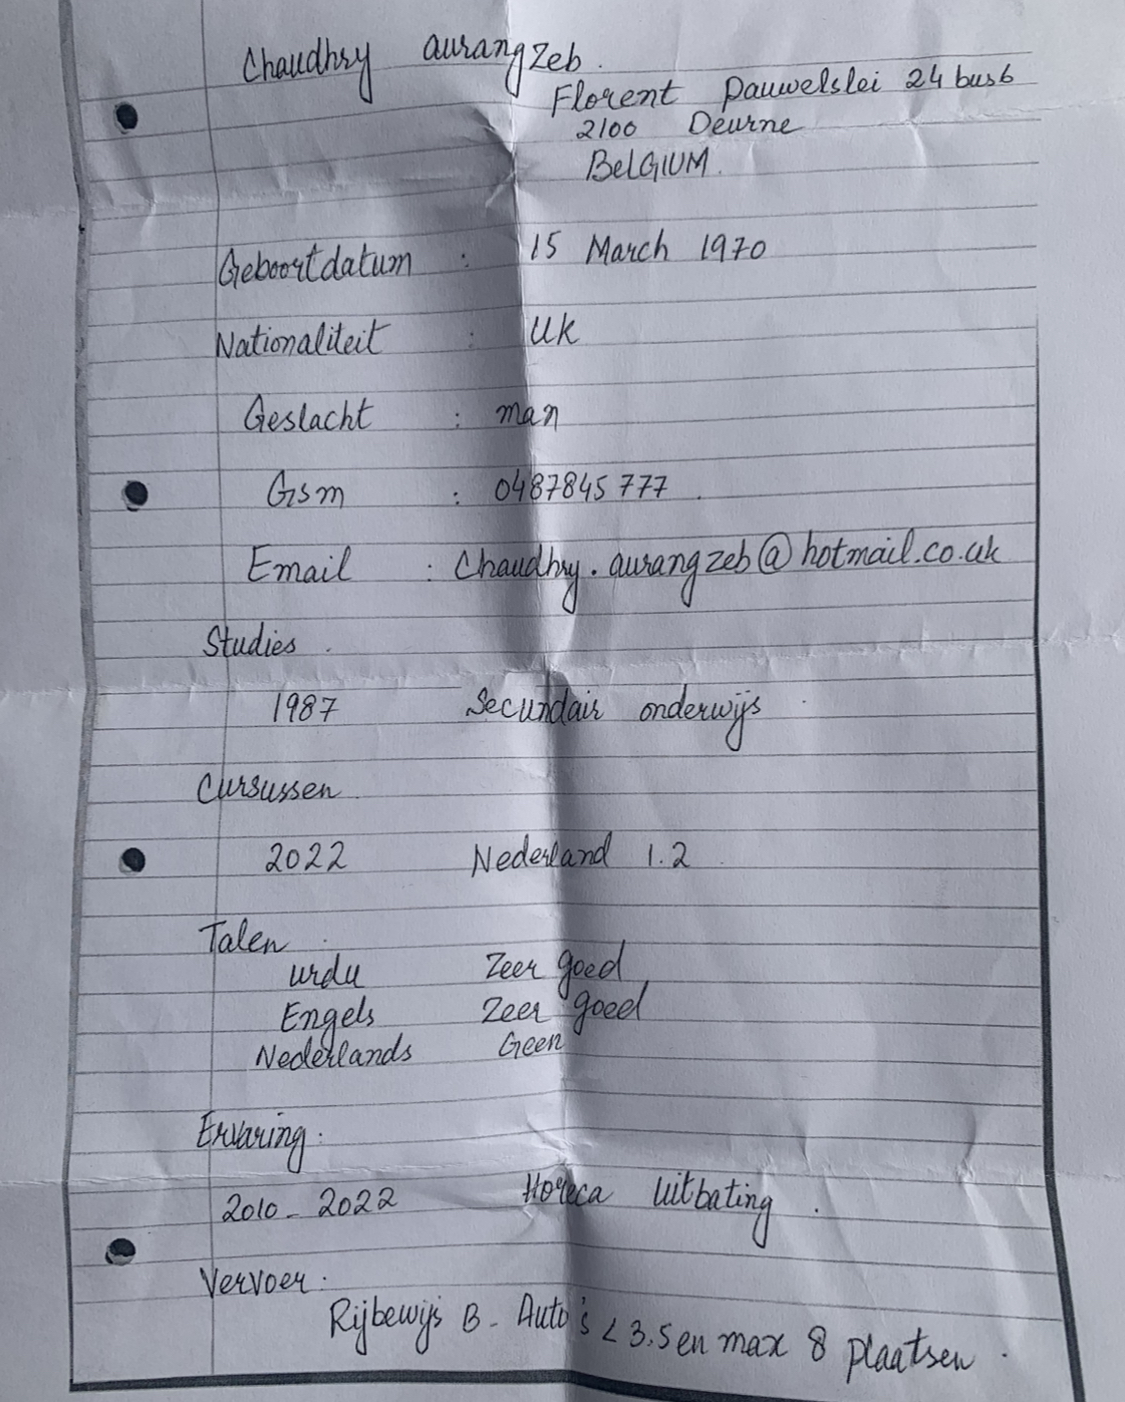 Chaudhry aurangzeb.
Florent Pauwelslei 24 bus6
2100 Deurne
BelGIUM.
Geboortdatum : 15 March 1970
Nationaliteit : UK
Geslacht : man
Gsm : 0487845777.
Email : Chaudhry.aurangzeb@hotmail.co.uk
Studies.
1987 Secundair onderwijs
Cursussen
2022 Nederland 1.2
Talen
urdu Zeer goed
Engels Zeer goed
Nederlands Geen
Ervaring:
2010 - 2022 Horeca Uitbating.
Vervoer:
Rijbewijs B - Auto's < 3.5 en max 8 plaatsen.